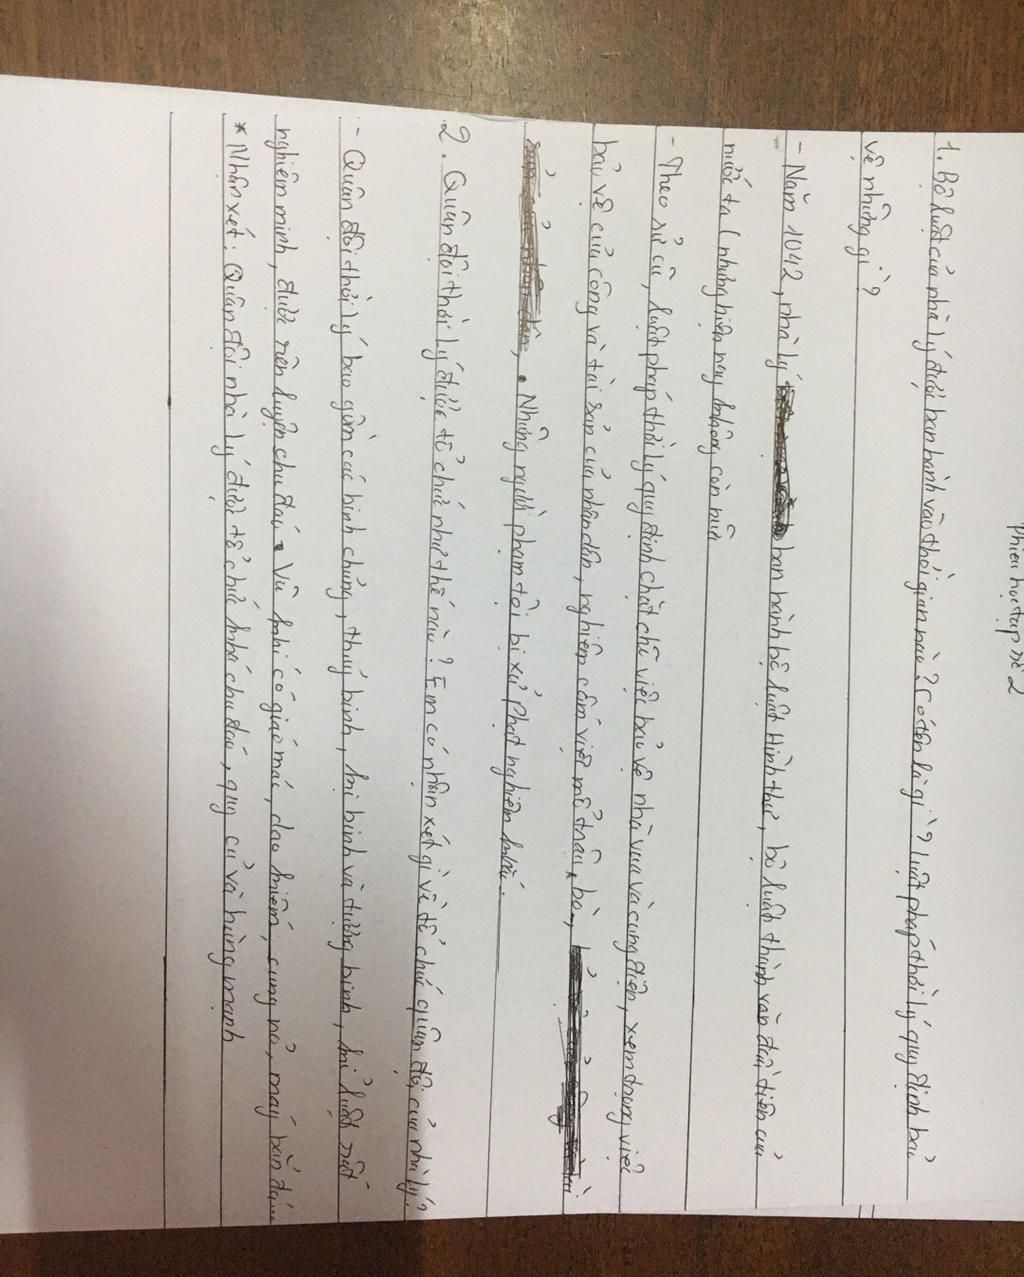 Phiếu học tập số 2
1. Bộ luật của nhà lý được ban hành vào thời gian nào? Có tên là gì? Luật pháp thời lý quy định bảo
vệ những gì?
- Năm 1042, nhà lý ban hành bộ luật Hình thư, bộ luật thành văn đầu tiên của
nước ta (nhưng hiện nay không còn nữa
- Theo sử cũ, luật pháp thời lý quy định chặt chẽ việc bảo vệ nhà vua và cung điện, xem trọng việc
bảo vệ của công và tài sản của nhân dân, nghiêm cấm việc mổ trâu, bò,
Những người phạm tội bị xử phạt nghiêm khắc.
2. Quân đội thời lý được tổ chức như thế nào? Em có nhận xét gì về tổ chức quân đội của nhà lý?
- Quân đội thời lý bao gồm các binh chủng, thuỷ binh, kị binh và tượng binh, kỉ luật rất
nghiêm minh, được rèn luyện chu đáo. Vũ khí có giáo mác, dao kiếm, cung nỏ, máy bắn đá
* Nhận xét: Quân đội nhà lý được tổ chức khá chu đáo, quy củ và hùng mạnh